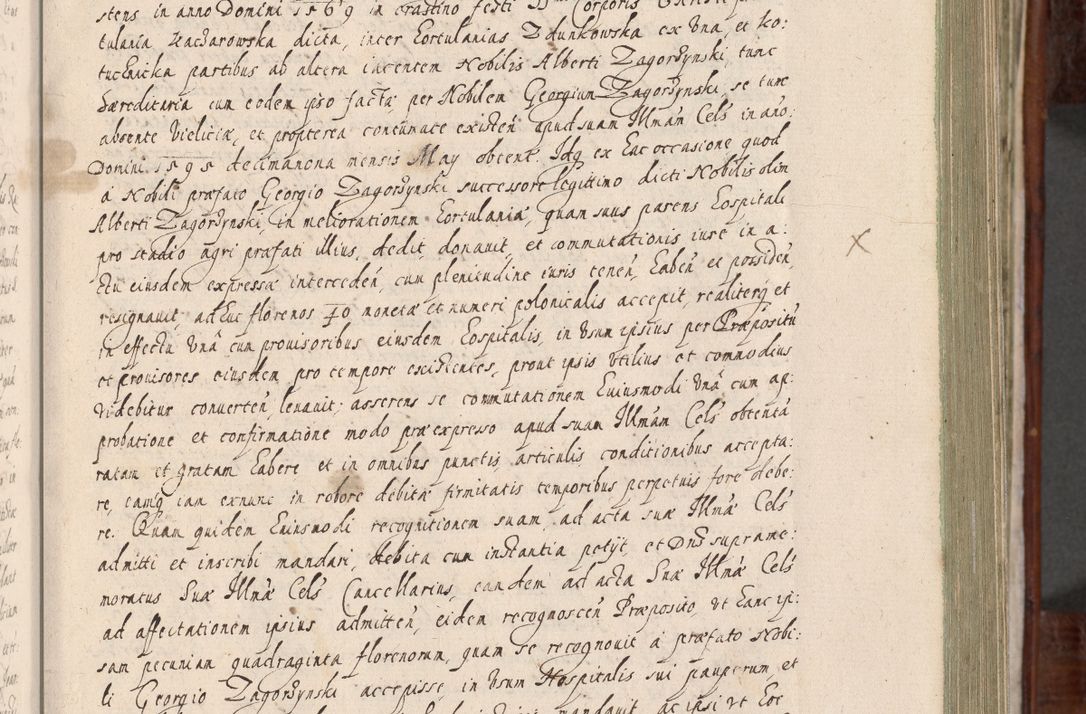 stens in anno Domini 1569 in crastino festi
tulania Zacharowska dicta, inter hortulanias Zdunkowska ex una, et Ko:
tuchnicka partibus ab altera iacentem Nobilis Alberti Zagorzynski, tunc
haereditaria cum eodem ipso facta, per Nobilem Georgium Zagorzynski, se tum
absente Vieliciae, et propterea concumace existen apud suam Illmam Cels in ano:
Domini 1595 decimanona mensis May obtent. Idq ex hac occasione quod
a Nobili praefato Georgio Zagorzynski successore legittimo dicti Nobilis olim
Alberti Zagorzynski, in meliorationem hortulaniae, quam suus parens hospitali
pro stadio agri praefati illius, dedit, donauit, et commutationis iure in a:
ctu eiusdem expressae interceden, cum plenitudine iuris tenen, haben et possiden,
resignauit, adhuc florenos 40 monetae et numeri polonicalis accepit, realiterq et
in effectu una cum prouisoribus eiusdem hospitalis, in usum ipsius per Praepositu
et prouisores eiusdem pro tempore existentes, prout ipsis utilius et commodius
videbitur conuerten, leuauit; asserens se commutationem huiusmodi una cum ap:
probatione et confirmatione modo praeexpresso apud suam Illmam Cels obtenta
ratam et gratam habere et in omnibus punctis, articulis, conditionibus accepta:
re, eamq iam exnunc in robore debitae firmitatis temporibus perpetuis fore debe:
re. Quam quidem huiusmodi recognitionem suam, ad acta suae Illmae Cels
admitti et inscribi mandari, debita cum instantia petyt, et Dns suprame:
moratus Suae Illmae Cels Cancellarius, eandem ad acta Suae Illmae Cels
ad affectationem ipsius admitten, eidem recognoscen Praeposito, ut hanc ipi:
sam pecuniam quadraginta florenorum, quam se recognouit a praefato Nobi:
li Georgio Zagorzynski accepisse, in usum Hospitalis sui pauperum, et
mandauit, ac ipsi ut hoc